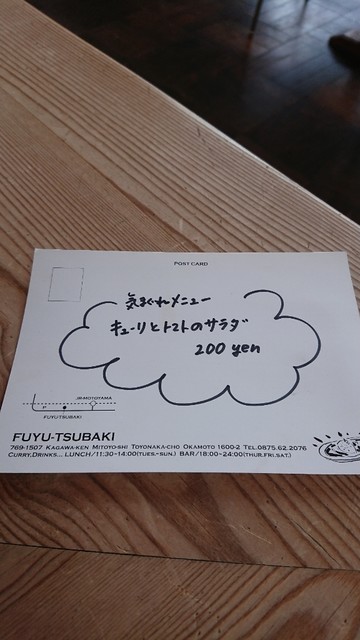 POST CARD
気まぐれメニュー
キューリとトマトのサラダ
200 yen
JR-MOTOYAMA
FUYU-TSUBAKI
FUYU-TSUBAKI
769-1507 KAGAWA-KEN MITOYO-SHI TOYONAKA-CHO OKAMOTO 1600-2 TEL.0875.62.2076
CURRY,DRINKS... LUNCH/11:30-14:00(TUES.-SUN.) BAR/18:00-24:00(THUR.FRI.SAT.)